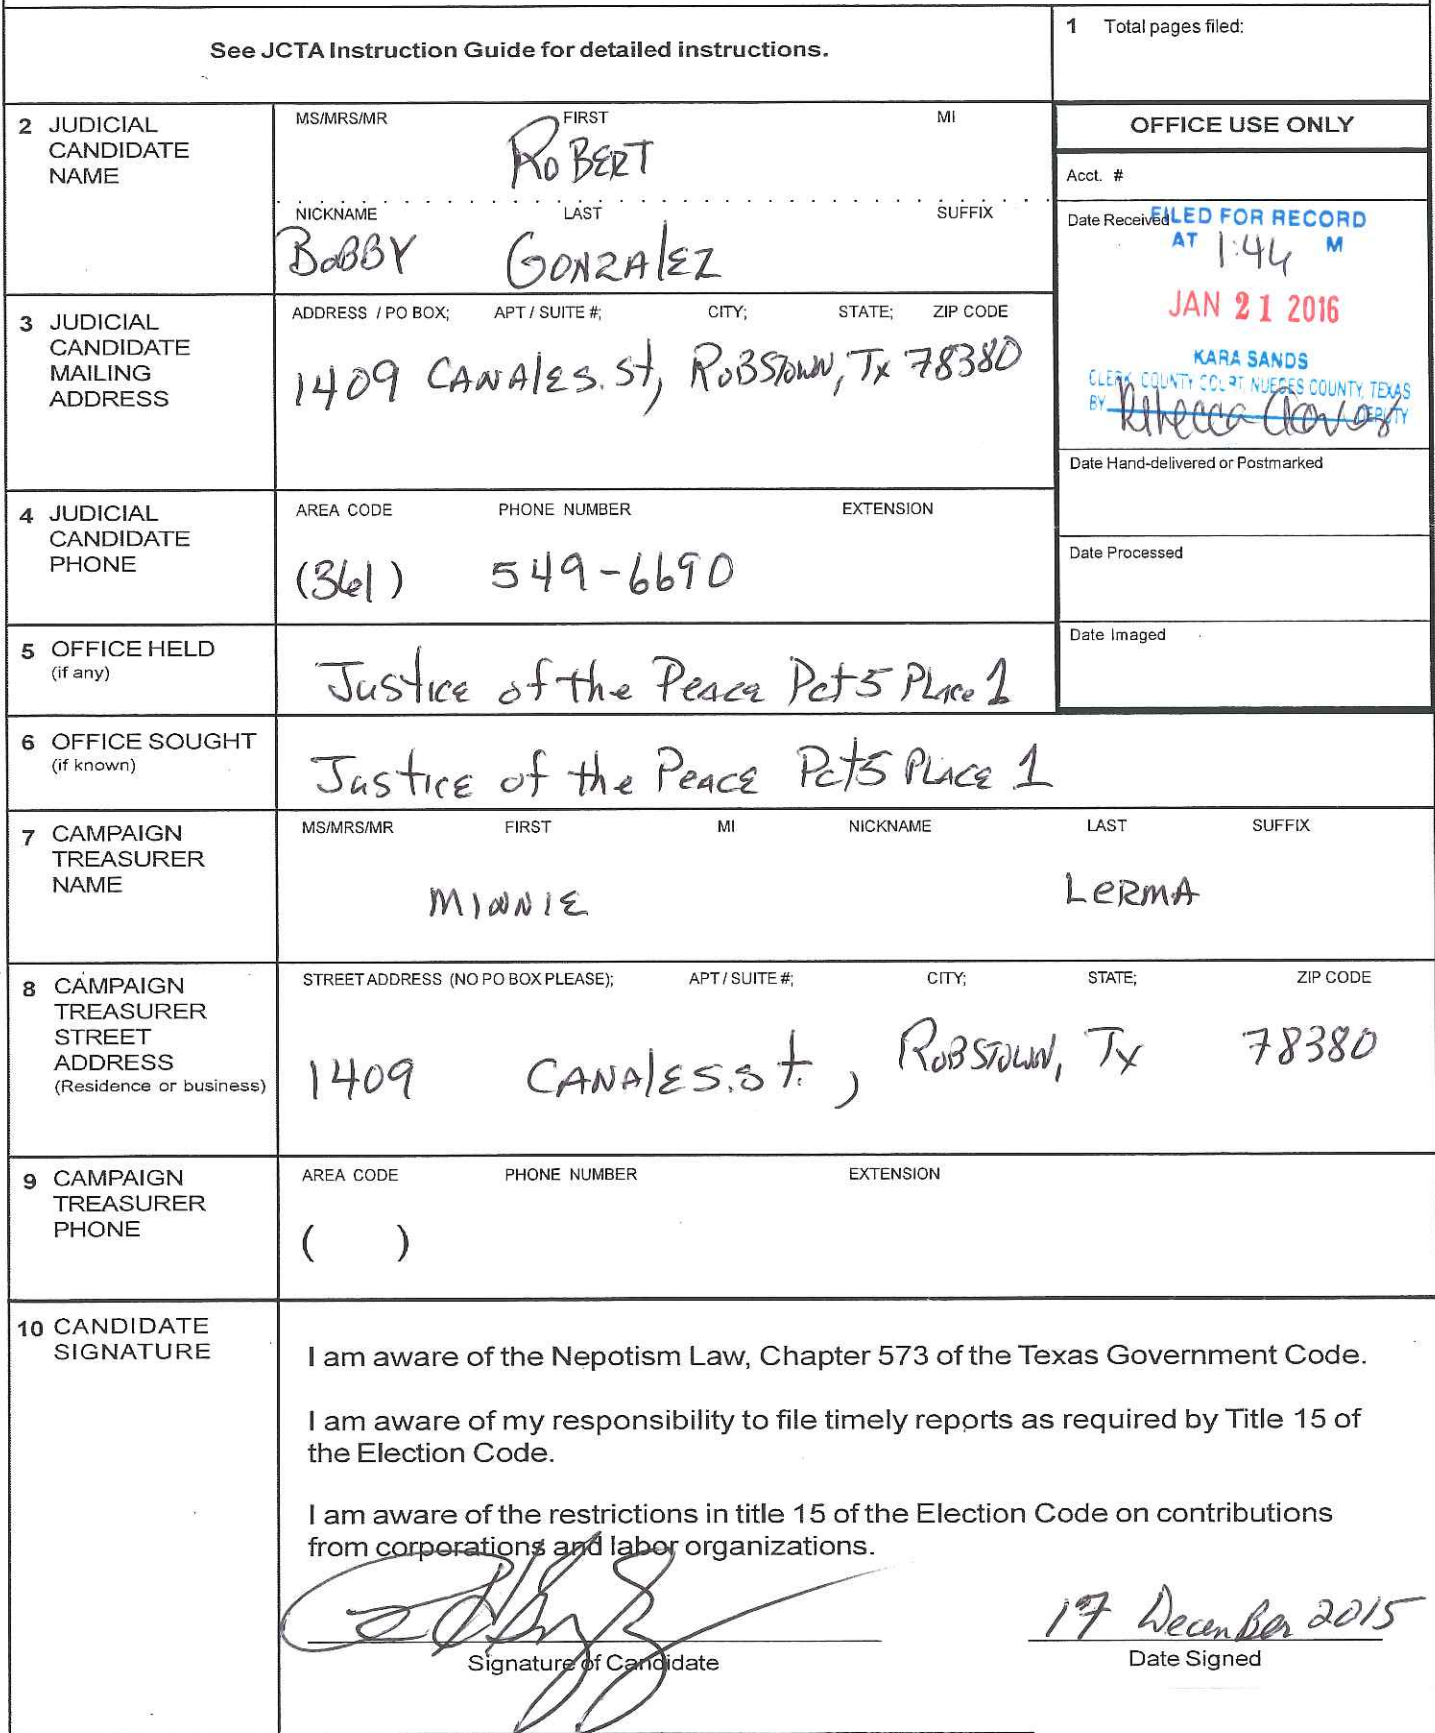 See JCTA Instruction Guide for detailed instructions.
1 Total pages filed:
2 JUDICIAL CANDIDATE NAME
MS/MRS/MR FIRST MI
ROBERT
NICKNAME LAST SUFFIX
BOBBY GONZALEZ
OFFICE USE ONLY
Acct. #
Date Received
FILED FOR RECORD
AT 1:44 M
JAN 21 2016
KARA SANDS
CLERK COUNTY COURT, NUECES COUNTY, TEXAS
BY Rebecca DEPUTY
Date Hand-delivered or Postmarked
Date Processed
Date Imaged
3 JUDICIAL CANDIDATE MAILING ADDRESS
ADDRESS / PO BOX; APT / SUITE #; CITY; STATE; ZIP CODE
1409 CANALES. St, ROBSTOWN, Tx 78380
4 JUDICIAL CANDIDATE PHONE
AREA CODE PHONE NUMBER EXTENSION
(361) 549-6690
5 OFFICE HELD (if any)
Justice of the Peace Pct 5 Place 1
6 OFFICE SOUGHT (if known)
Justice of the Peace Pct 5 PLACE 1
7 CAMPAIGN TREASURER NAME
MS/MRS/MR FIRST MI NICKNAME LAST SUFFIX
MINNIE LERMA
8 CAMPAIGN TREASURER STREET ADDRESS (Residence or business)
STREET ADDRESS (NO PO BOX PLEASE); APT / SUITE #; CITY; STATE; ZIP CODE
1409 CANALES. St., ROBSTOWN, Tx 78380
9 CAMPAIGN TREASURER PHONE
AREA CODE PHONE NUMBER EXTENSION
( )
10 CANDIDATE SIGNATURE
I am aware of the Nepotism Law, Chapter 573 of the Texas Government Code.
I am aware of my responsibility to file timely reports as required by Title 15 of
the Election Code.
I am aware of the restrictions in title 15 of the Election Code on contributions
from corporations and labor organizations.
17 December 2015
Signature of Candidate Date Signed